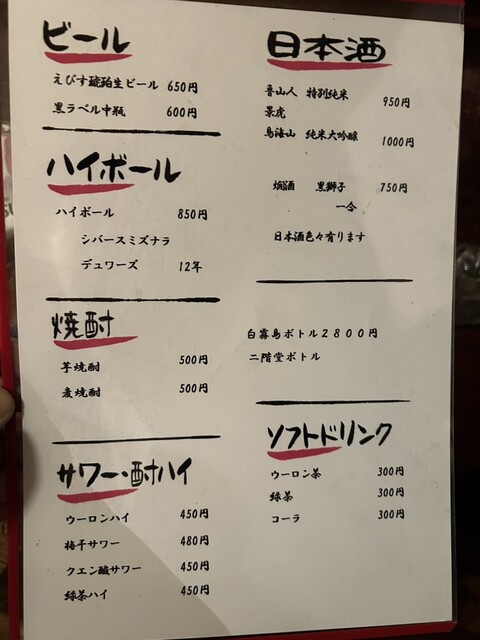 ビール
えびす琥珀生ビール 650円
黒ラベル中瓶 600円
ハイボール
ハイボール 850円
シバースミズナラ
デュワーズ 12年
焼酎
芋焼酎 500円
麦焼酎 500円
サワー・酎ハイ
ウーロンハイ 450円
梅干サワー 480円
クエン酸サワー 450円
緑茶ハイ 450円
日本酒
特別純米 950円
景虎
鳥海山 純米大吟醸 1000円
燗酒 黒獅子 750円
一合
日本酒色々有ります
白霧島ボトル2800円
二階堂ボトル
ソフトドリンク
ウーロン茶 300円
緑茶 300円
コーラ 300円